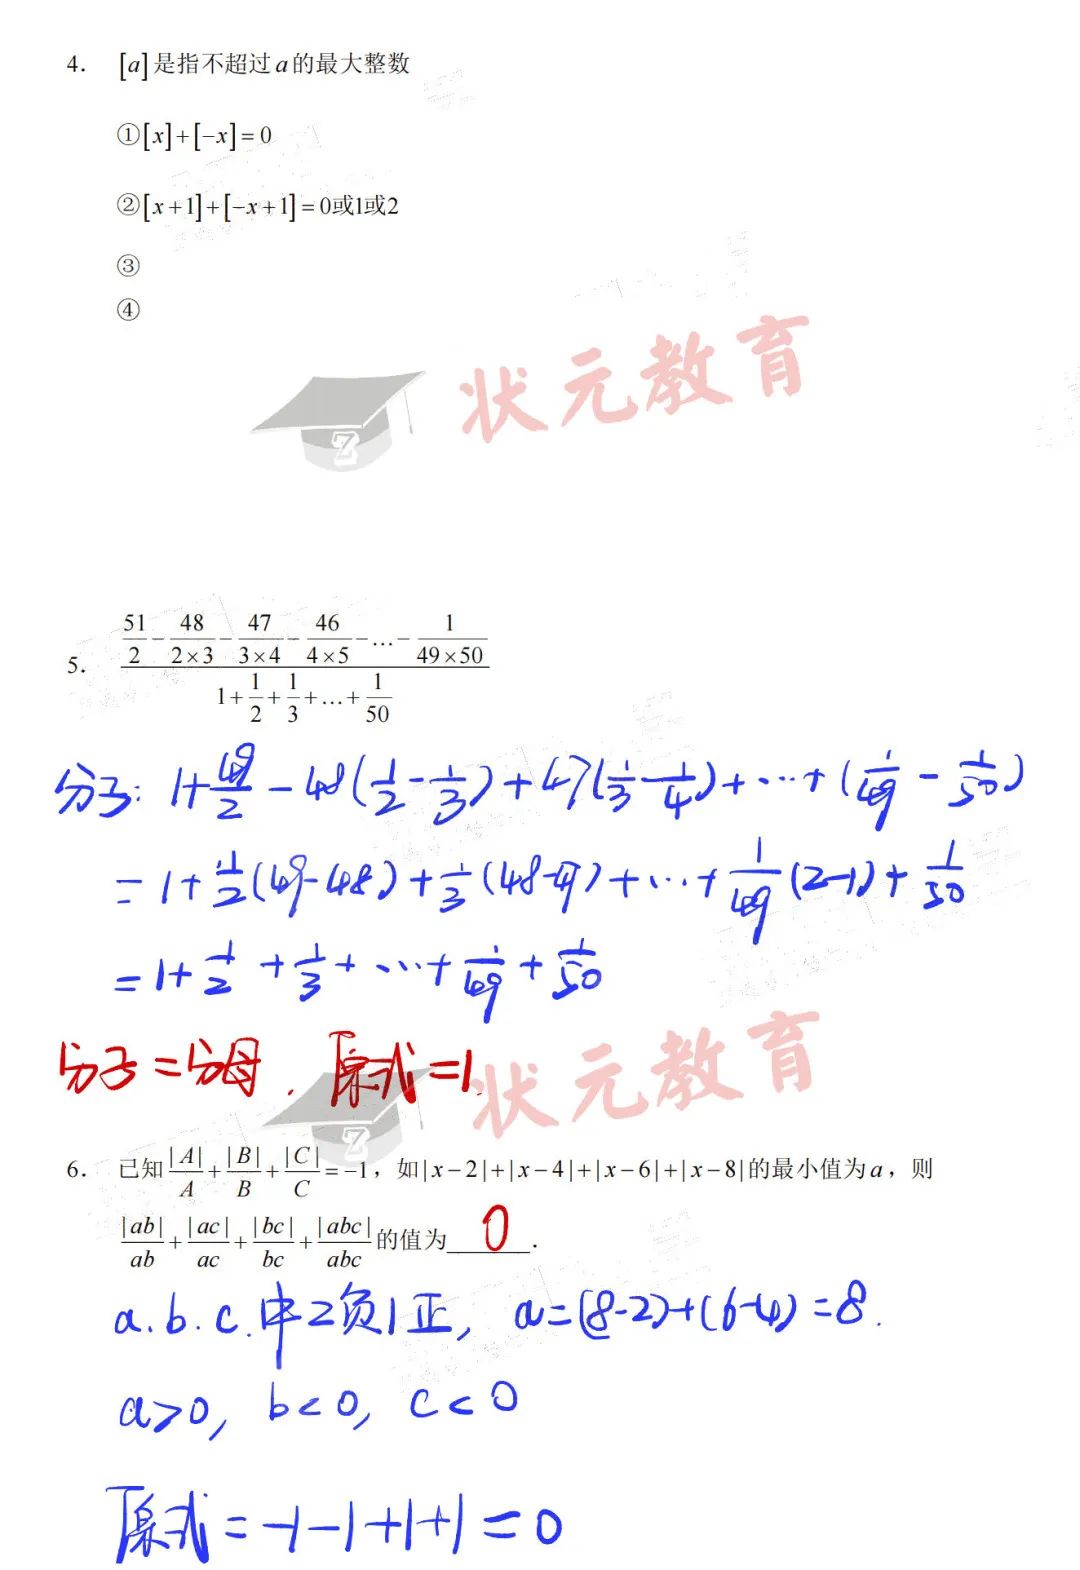 4. [a]是指不超过a的最大整数
①[x]+[−x]=0
②[x+1]+[−x+1]=0或1或2
③
④
状元教育
5. \frac{\frac{51}{2}-\frac{48}{2×3}-\frac{47}{3×4}-\frac{46}{4×5}-…-\frac{1}{49×50}}{1+\frac{1}{2}+\frac{1}{3}+…+\frac{1}{50}}
分子: 1+\frac{49}{2}-48(\frac{1}{2}-\frac{1}{3})+47(\frac{1}{3}-\frac{1}{4})+…+(\frac{1}{49}-\frac{1}{50})
=1+\frac{1}{2}(49-48)+\frac{1}{3}(48-47)+…+\frac{1}{49}(2-1)+\frac{1}{50}
=1+\frac{1}{2}+\frac{1}{3}+…+\frac{1}{49}+\frac{1}{50}
分子=分母. 原式=1.
状元教育
6. 已知\frac{|A|}{A}+\frac{|B|}{B}+\frac{|C|}{C}=−1，如|x−2|+|x−4|+|x−6|+|x−8|的最小值为a，则
\frac{|ab|}{ab}+\frac{|ac|}{ac}+\frac{|bc|}{bc}+\frac{|abc|}{abc}的值为 0 .
a.b.c.中2负1正, a=(8-2)+(6-4)=8.
a>0, b<0, c<0
原式=-1-1+1+1=0